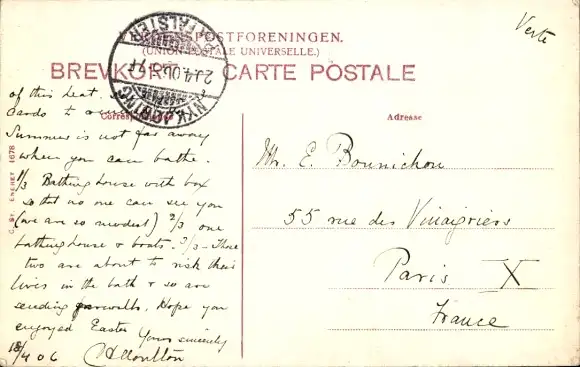 Verte
VERDENSPOSTFORENINGEN.
(UNION POSTALE UNIVERSELLE.)
BREVKORT. CARTE POSTALE
NYKJØBING
FALSTER
Correspondance
Adresse
of this beat.
Cards to
Summer is not far away
when you can bathe.
1/3 Bathing house with box
so that no one can see you
(we are so modest) 2/3 one
bathinghouse & boats. 3/3 - These
two are about to risk their
lives in the bath & so are
sending farewells. Hope you
enjoyed Easter Yours sincerely
18/4 06
Mr. E. Bounichou
55 rue des Vinaigriers
Paris X
France
ENERET 1678